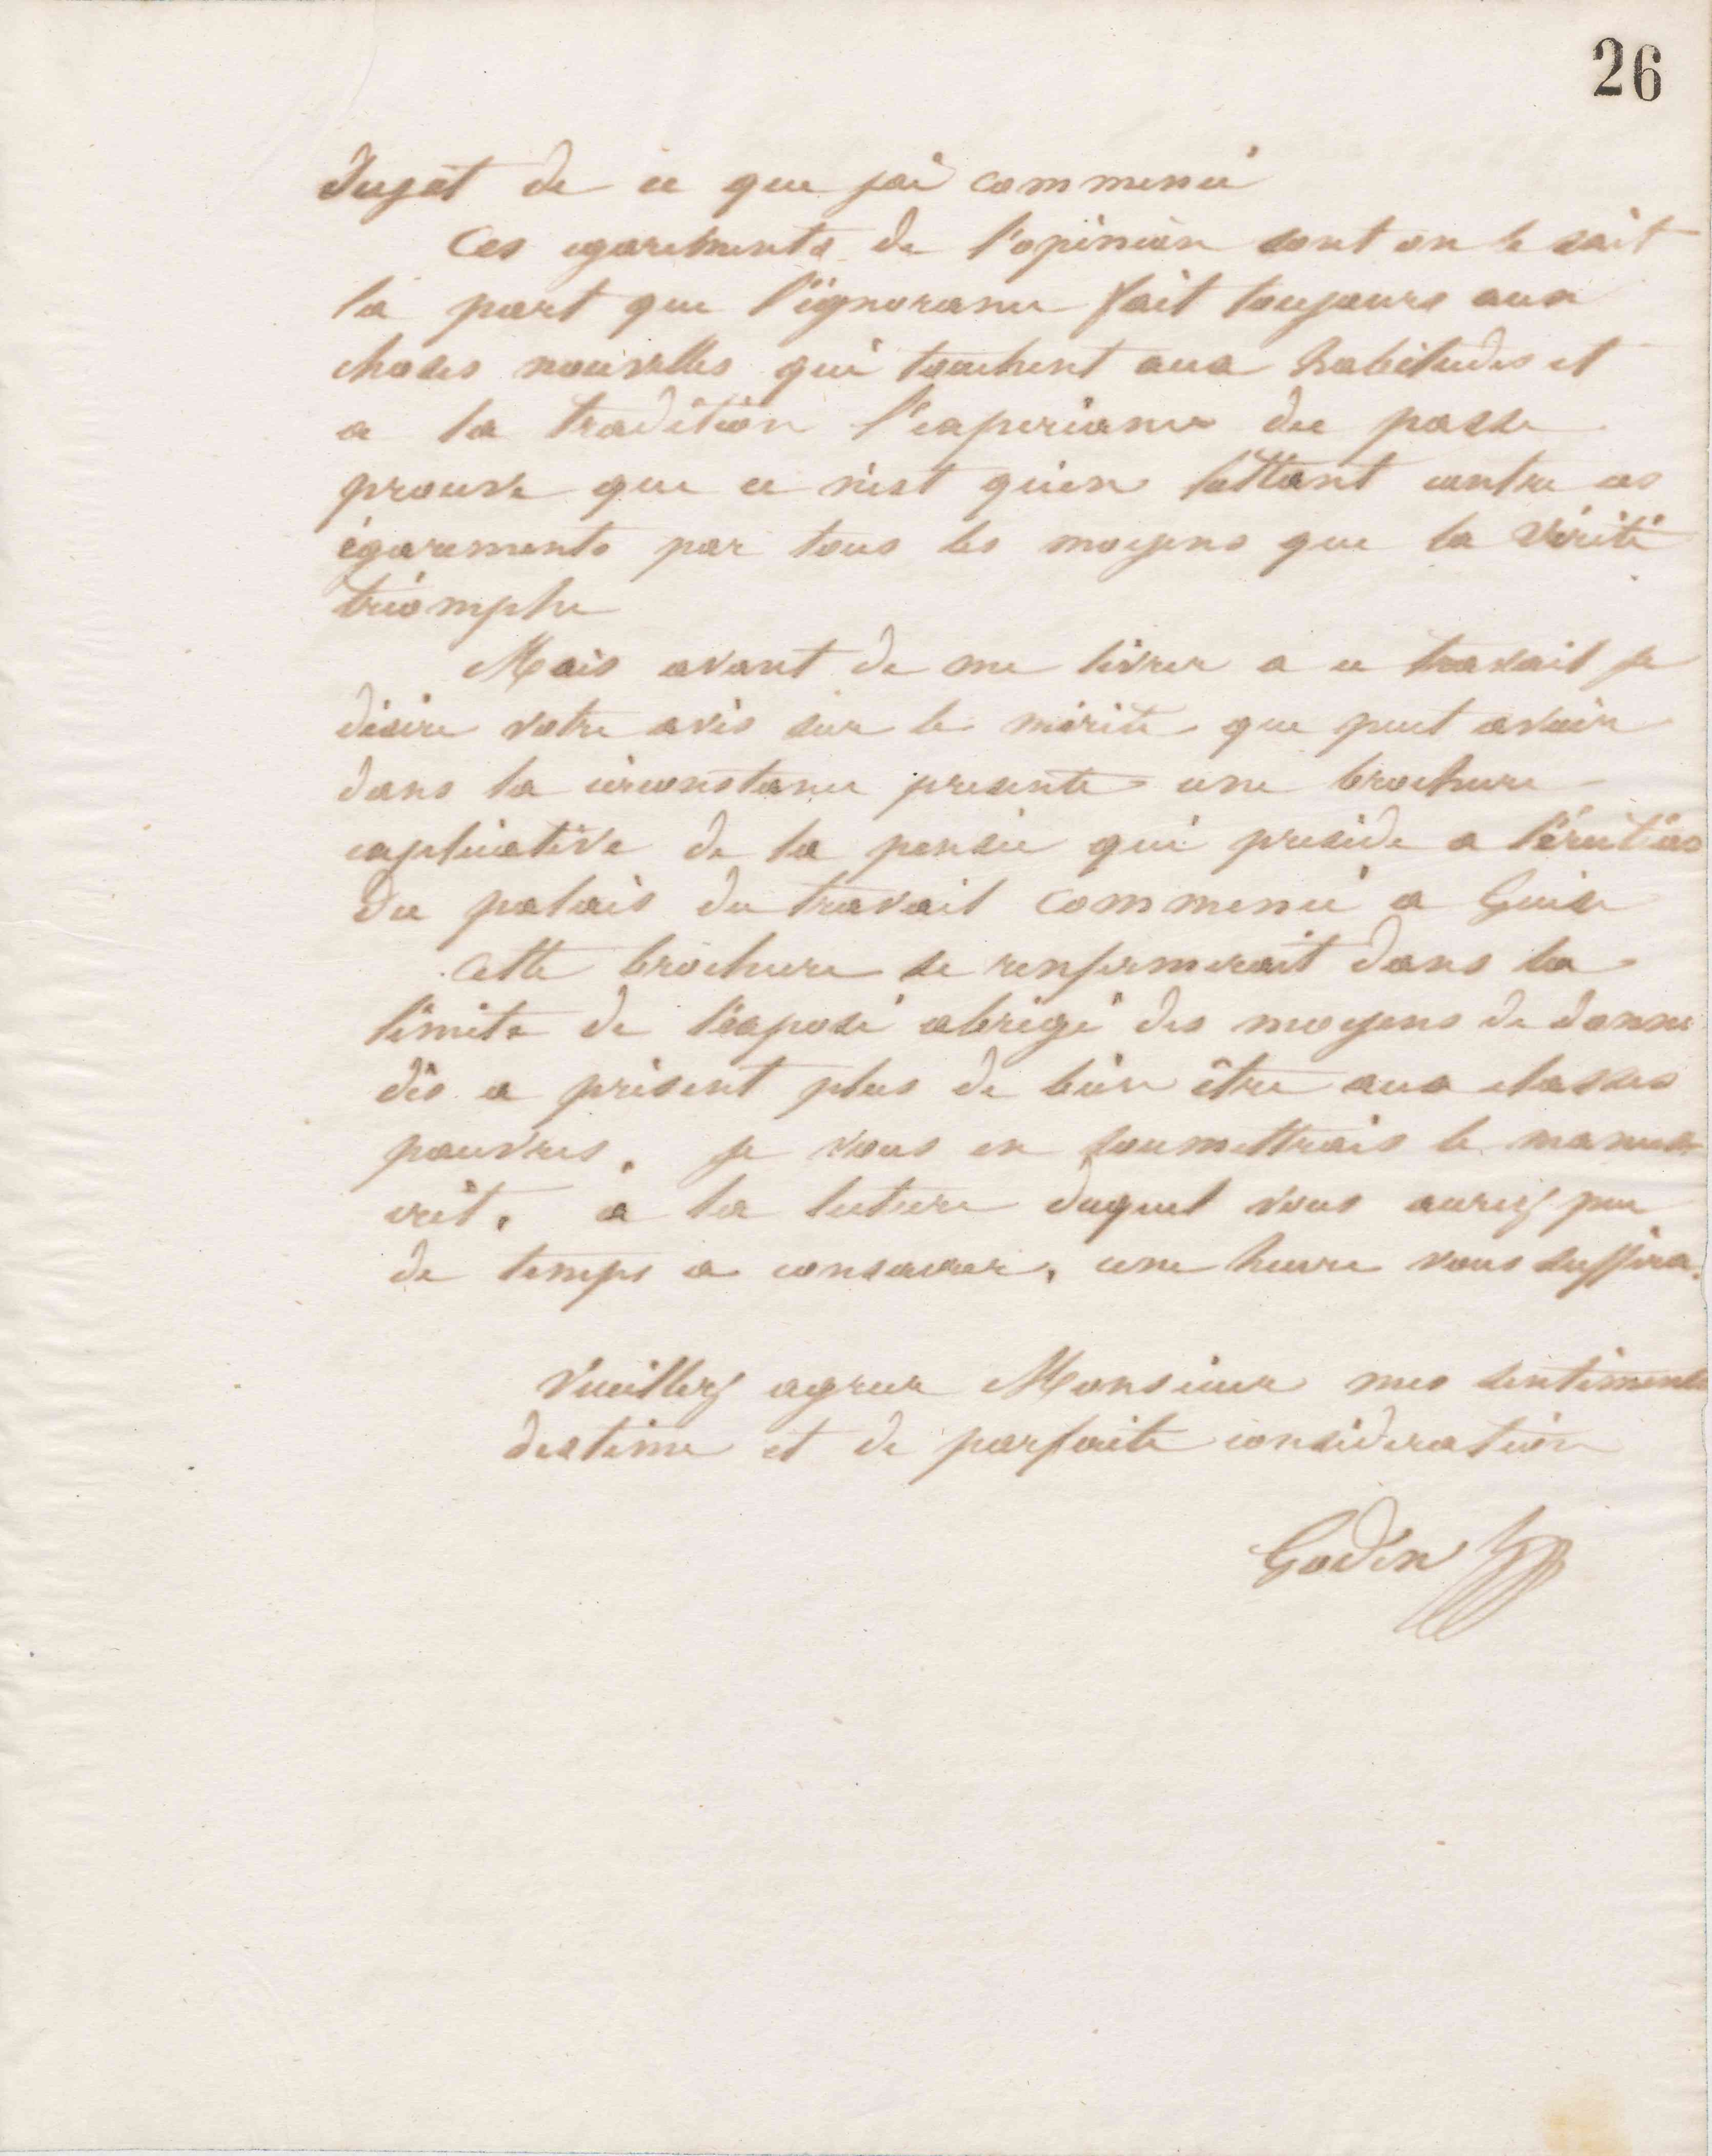 26
sujet de ce que jai commencé
Ces egarements de l'opinion sont on le sait
la part que l'ignorance fait toujours aux
choses nouvelles qui touchent aux habitudes et
a la tradition l'experience du passe
prouve que ce n'est qu'en luttant contre ces
égarements par tous les moyens que la vérité
triomphe
Mais avant de me livrer a ce travail je
désire votre avis sur le mérite que peut avoir
dans la circonstance presente une brochure
explicative de la pensée qui preside a l'érection
du palais du travail commencé a Guise
cette brochure se renfermerait dans la
limite de l'exposé abrégé des moyens de donner
dès a présent plus de bien être aux classes
pauvres. je vous en soumettrais le manus
crit. a la lecture duquel vous aurez peu
de temps a consacrer. une heure vous suffira.
Veuillez agreer Monsieur mes sentiments
destime et de parfaite consideration
Godin